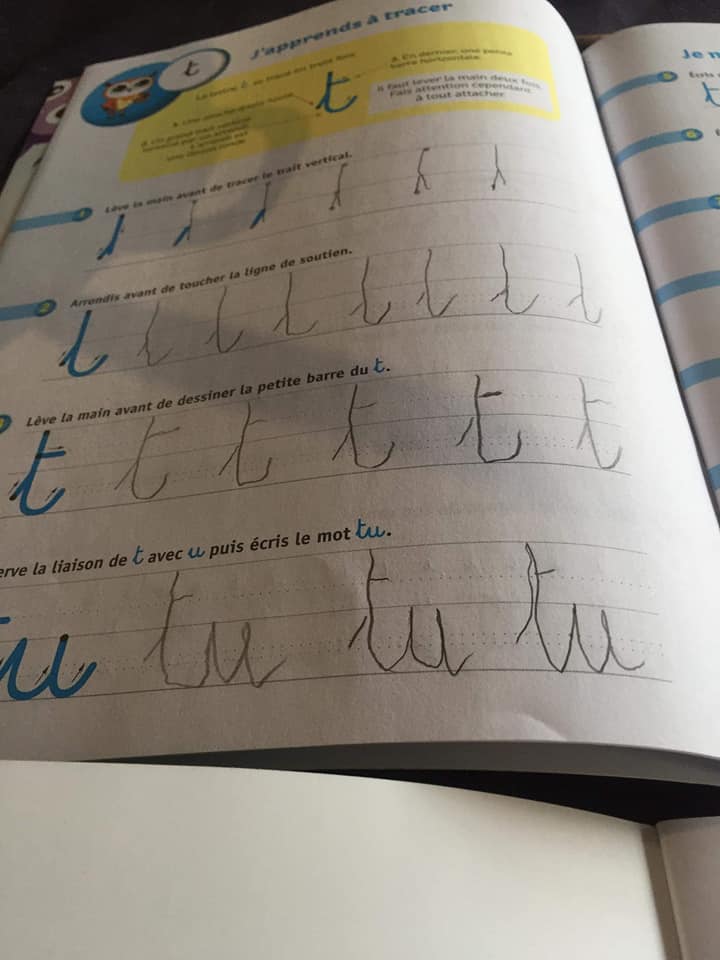 J'apprends à tracer
t
La lettre t se trace en trois fois.
3. En dernier, une petite
barre horizontale.
t
Il faut lever la main deux fois.
Fais attention cependant
à tout attacher.
1 Lève la main avant de tracer le trait vertical.
2 Arrondis avant de toucher la ligne de soutien.
t t t t t t t t
Lève la main avant de dessiner la petite barre du t.
t t t t t t
erve la liaison de t avec u puis écris le mot tu.
u tu tu tu
Je